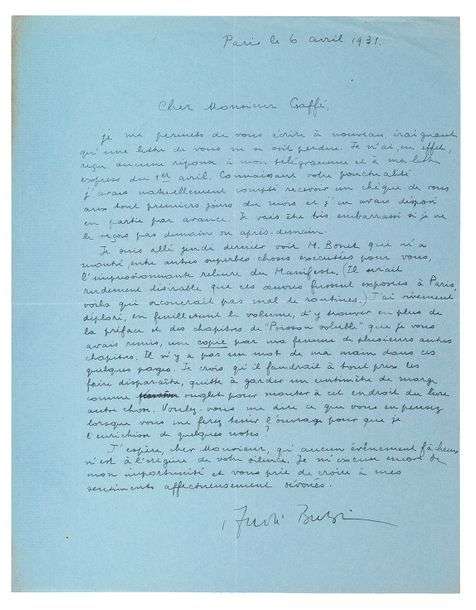 Paris le 6 avril 1931.
Cher Monsieur Gaffé,
Je me permets de vous écrire à nouveau, craignant
qu'une lettre de vous ne se soit perdue. Je n'ai, en effet,
reçu aucune réponse à mon télégramme et à ma lettre
express du 1er avril. Connaissant votre ponctualité
j'avais naturellement compté recevoir un chèque de vous
aux tout premiers jours du mois et j'en avais disposé
en partie par avance. Je vais être très embarrassé si je ne
le reçois pas demain ou après-demain.
Je suis allé jeudi dernier voir M. Bonet que m'a
montré entre autres superbes choses exécutées pour vous,
l'impressionnante reliure du Manifeste. (Il serait
rudement désirable que ces œuvres fussent exposées à Paris,
voilà qui pas mal de routines.) J'ai vivement
déploré, en feuilletant le volume, d'y trouver en plus de
la préface et des chapitres de "Poisson soluble" que je vous
avais remis, une copie par ma femme de plusieurs autres
chapitres. Il n'y a pas un mot de ma main dans ces
quelques pages. Je crois qu'il faudrait à tout prix les
faire disparaître, quitte à garder un centimètre de marge
comme onglet pour monter à cet endroit du livre
autre chose. Voulez-vous me dire ce que vous en pensez
lorsque vous me ferez tenir l'ouvrage pour que je
l'enrichisse de quelques notes?
J'espère, cher Monsieur, qu'aucun événement fâcheux
n'est à l'origine de votre silence. Je m'excuse encore de
mon importunité et vous prie de croire à mes
sentiments affectueusement dévoués.
André Breton